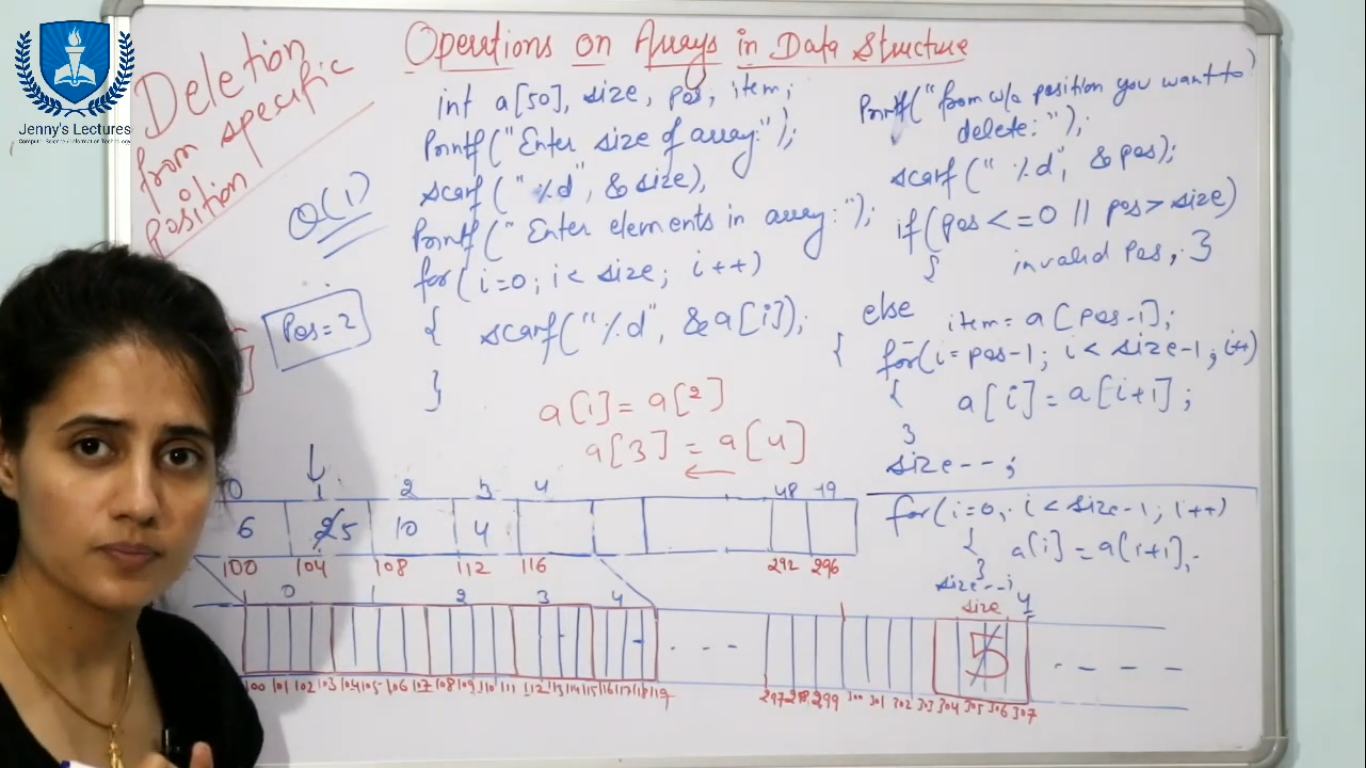 Jenny's Lectures
Computer Science/Information Technology
Deletion
from specific
position
O(1)
Pos=2
Operations on Arrays in Data Structure
int a[50], size, pos, item;
Printf("Enter size of array:");
scanf("%d", &size),
Printf("Enter elements in array:");
for(i=0; i< size; i++)
{ scanf("%d", &a[i]);
}
a[1]=a[2]
a[3] = a[4]
Printf("from w/c position you want to
delete:");
scanf("%d", &pos);
if(pos<=0 || pos> size)
{ invalid Pos, }
else
item= a[pos-1];
{ for(i=pos-1; i< size-1; i++)
{ a[i]=a[i+1];
}
size--;
for(i=0; i<size-1; i++)
{ a[i]=a[i+1],
}
size--;
0 1 2 3 4 48 49
6 25 10 4
100 104 108 112 116 292 296
0 1 2 3 4 size 4
5
100 101 102 103 104 105 106 107 108 109 110 111 112 113 114 115 116 117 118 119 297 298 299 300 301 302 303 304 305 306 307